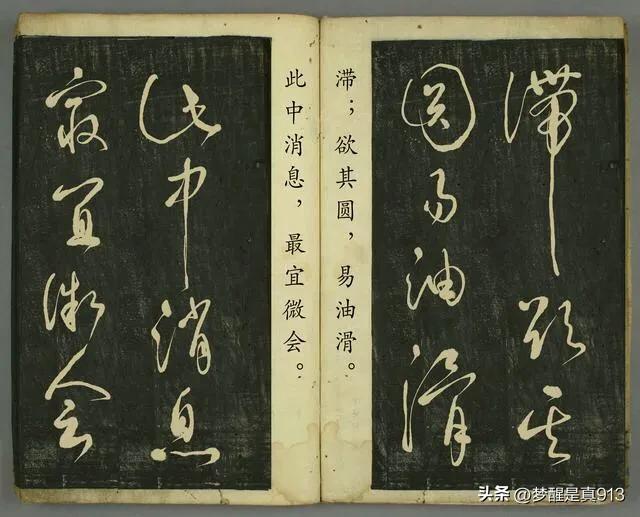 滞欲其
圆易油滑
滞；欲其圆，易油滑。
此中消息，最宜微会。
此中消息
最宜微会
头条 @梦醒是真913